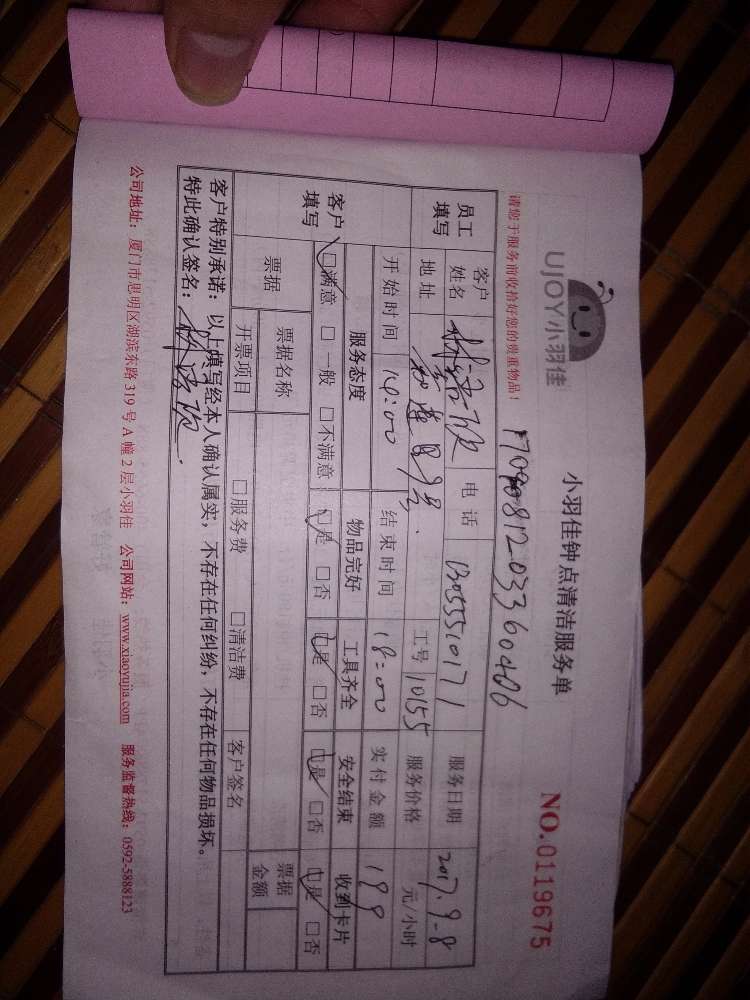 UJOY小羽佳
小羽佳钟点清洁服务单
NO.0119675
请您于服务前收拾好您的贵重物品！
员工填写 客户姓名 电话 13055510171 服务日期 2017.9-8
地址 工号 10155 服务价格 元/小时
开始时间 14:00 结束时间 18:00 实付金额 199
客户填写 服务态度 物品完好 工具齐全 安全结束 收到卡片
□满意 □一般 □不满意 □是 □否 □是 □否 □是 □否 □是 □否
票据 票据名称 票据金额
开票项目 □服务费 □清洁费 客户签名
客户特别承诺：以上填写经本人确认属实，不存在任何纠纷，不存在任何物品损坏。
特此确认签名：
公司地址：厦门市思明区湖滨东路 319 号 A 幢 2 层小羽佳 公司网站：www.xiaoyujia.com 服务监督热线：0592-5888123